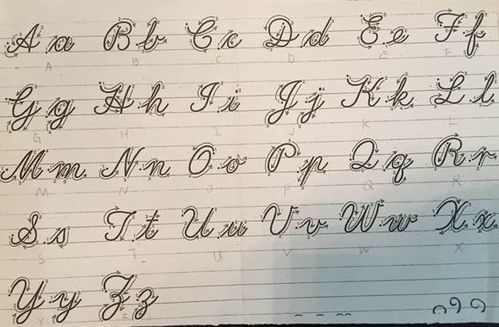 A a B b C c D d E e F f
A B C D E F
G g H h I i J j K k L l
G H I J K L
M m N n O o P p Q q R r
M N O P Q R
S s T t U u V v W w X x
S T U V W X
Y y Z z